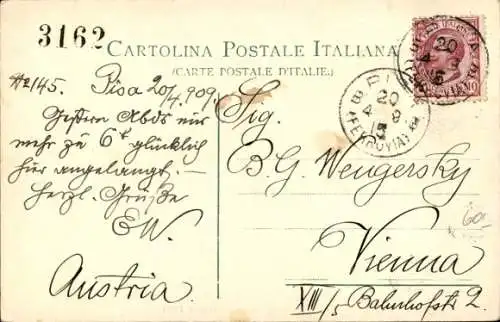 3162
CARTOLINA POSTALE ITALIANA
(CARTE POSTALE D'ITALIE.)
No 145. Pisa 20/4. 909.
Gestern Abds
mehr zu 6t glücklich
hier angelangt. —
Herzl. Grüße
EW.
Austria
Sig.
B. G. Wengersky
Vienna
XIII/5 Bahnhofstr 2.
20
4 9
(FERROVIA)
20
60.-